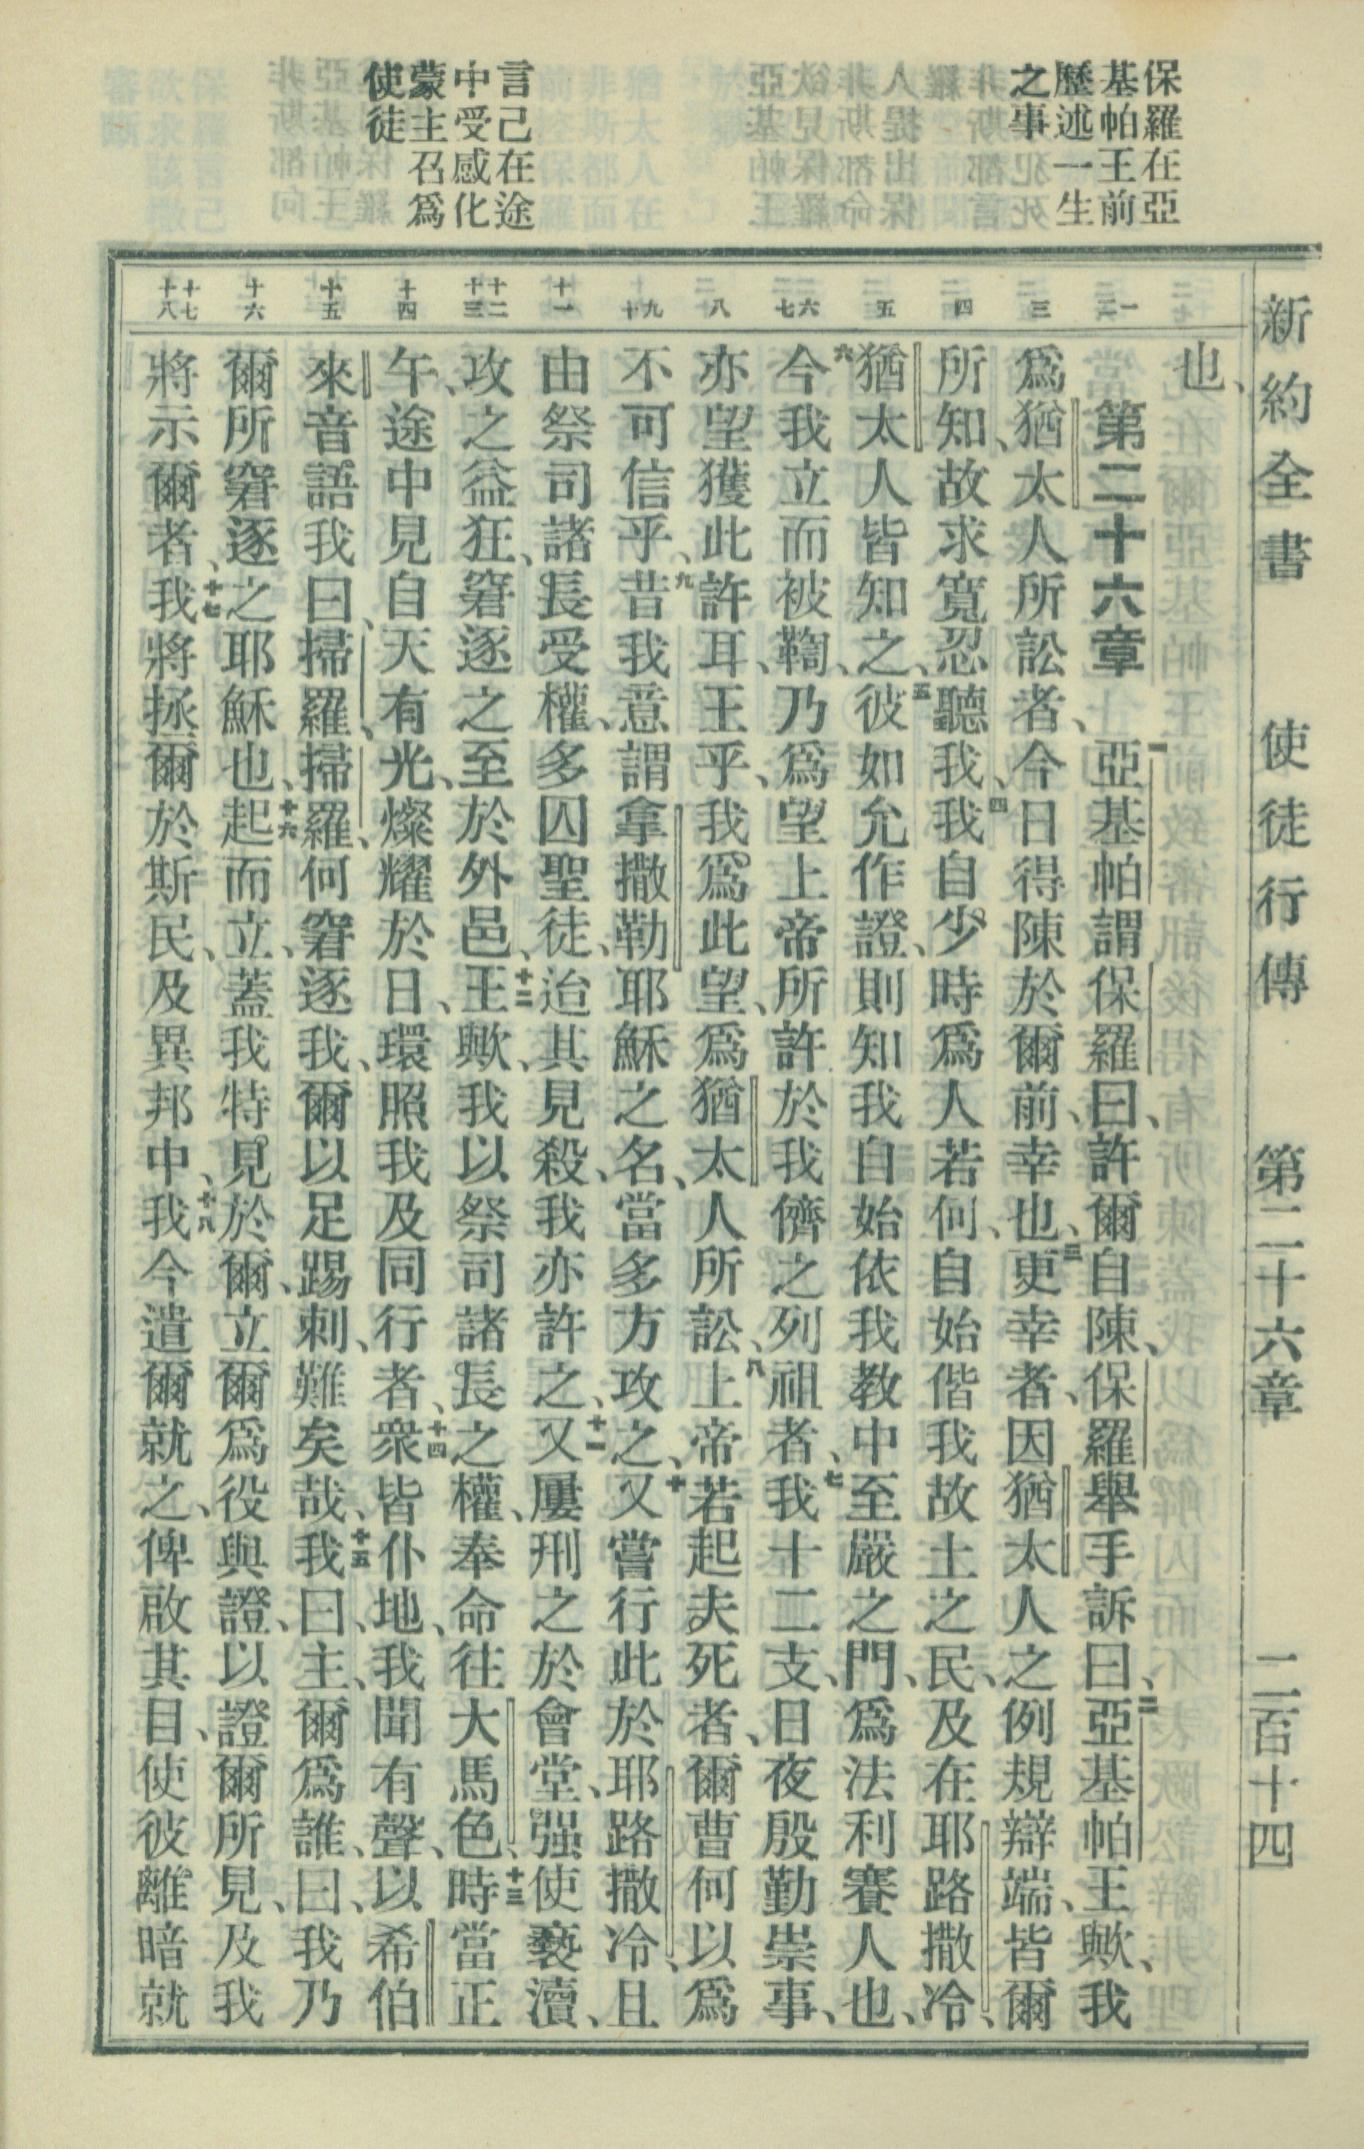 新約全書 使徒行傳 第二十六章 二百十四
保羅在亞
基帕王前
歷述一生
之事
言己在途
中受感化
蒙主召爲
使徒
一
二
三
四
五
六
七
八
九
十
十一
十二
十三
十四
十五
十六
十七
十八
也、
第二十六章 一亞基帕謂保羅曰、許爾自陳、保羅舉手訴曰、二亞基帕王歟、我
爲猶太人所訟者、今日得陳於爾前、幸也、三更幸者、因猶太人之例規辯端、皆爾
所知、故求寬忍聽我、四我自少時爲人若何、自始偕我故土之民、及在耶路撒冷、
猶太人皆知之、五彼如允作證、則知我自始依我教中至嚴之門、爲法利賽人也、
六今我立而被鞫、乃爲望上帝所許於我儕之列祖者、七我十二支、日夜殷勤崇事、
亦望獲此許耳、王乎、我爲此望、爲猶太人所訟、八上帝若起夫死者、爾曹何以爲
不可信乎、九昔我意謂拿撒勒耶穌之名、當多方攻之、十又嘗行此於耶路撒冷、且
由祭司諸長受權、多囚聖徒、迨其見殺、我亦許之、十一又屢刑之於會堂、强使褻瀆、
攻之益狂、窘逐之至於外邑、十二王歟、我以祭司諸長之權、奉命往大馬色、十三時當正
午、途中見自天有光、燦耀於日、環照我及同行者、十四衆皆仆地、我聞有聲、以希伯
來音語我曰、掃羅、掃羅、何窘逐我、爾以足踢刺、難矣哉、十五我曰、主、爾爲誰、曰、我乃
爾所窘逐之耶穌也、十六起而立、蓋我特見於爾、立爾爲役與證、以證爾所見、及我
將示爾者、十七我將拯爾於斯民、及異邦中、十八我今遣爾就之、俾啟其目、使彼離暗就